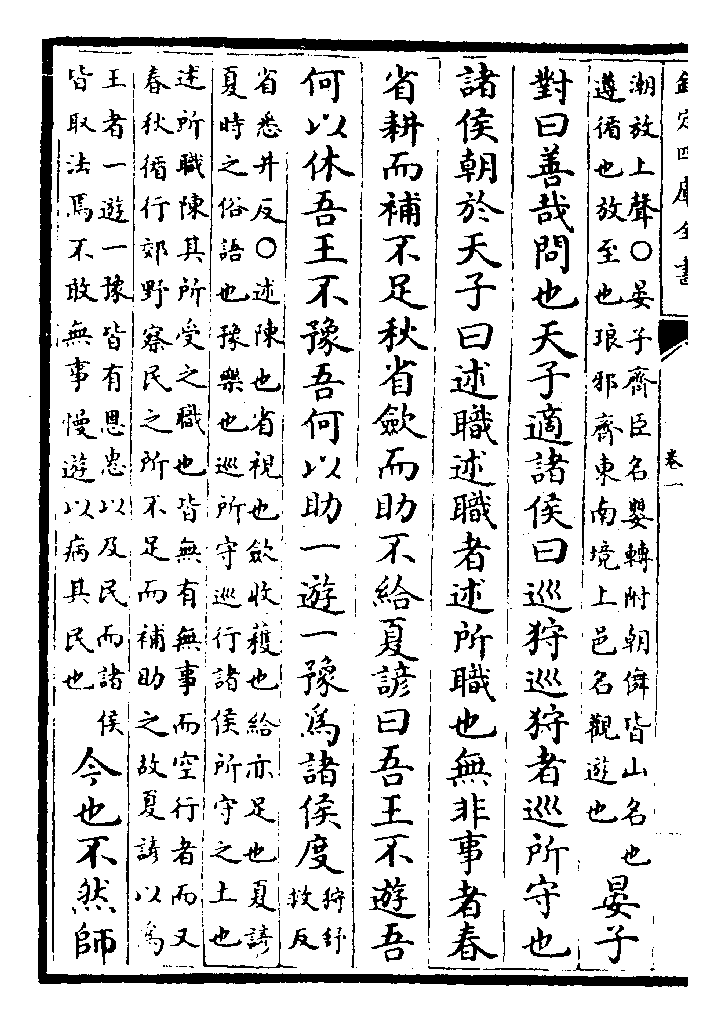 欽定四庫全書
卷一
潮放上聲○晏子齊臣名嬰轉附朝儛皆山名也
遵循也放至也琅邪齊東南境上邑名觀遊也
晏子
對曰善哉問也天子適諸侯曰巡狩巡狩者巡所守也
諸侯朝於天子曰述職述職者述所職也無非事者春
省耕而補不足秋省歛而助不給夏諺曰吾王不遊吾
何以休吾王不豫吾何以助一遊一豫為諸侯度
狩舒
救反
省悉井反○述陳也省視也歛收穫也給亦足也夏諺
夏時之俗語也豫樂也巡所守巡行諸侯所守之土也
述所職陳其所受之職也皆無有無事而空行者而又
春秋循行郊野察民之所不足而補助之故夏諺以為
王者一遊一豫皆有恩惠以及民而諸侯
皆取法焉不敢無事慢遊以病其民也
今也不然師